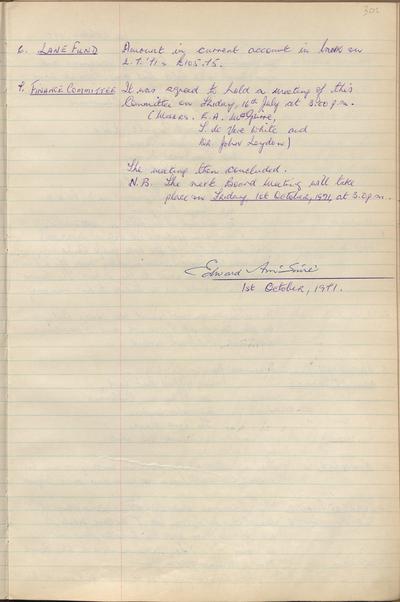 302
6. LANE FUND Amount in current account in bank on
2.7.'71 = £105.75.
7. FINANCE COMMITTEE It was agreed to hold a meeting of this
Committee on Friday, 16th July at 3.00 p.m.
(Messrs. E. A. McGuire,
T. de Vere White and
Dr. John Leydon)
The meeting then concluded.
N.B. The next Board Meeting will take
place on Friday 1st October, 1971, at 3.0 p.m.
Edward A. McGuire
1st October, 1971.